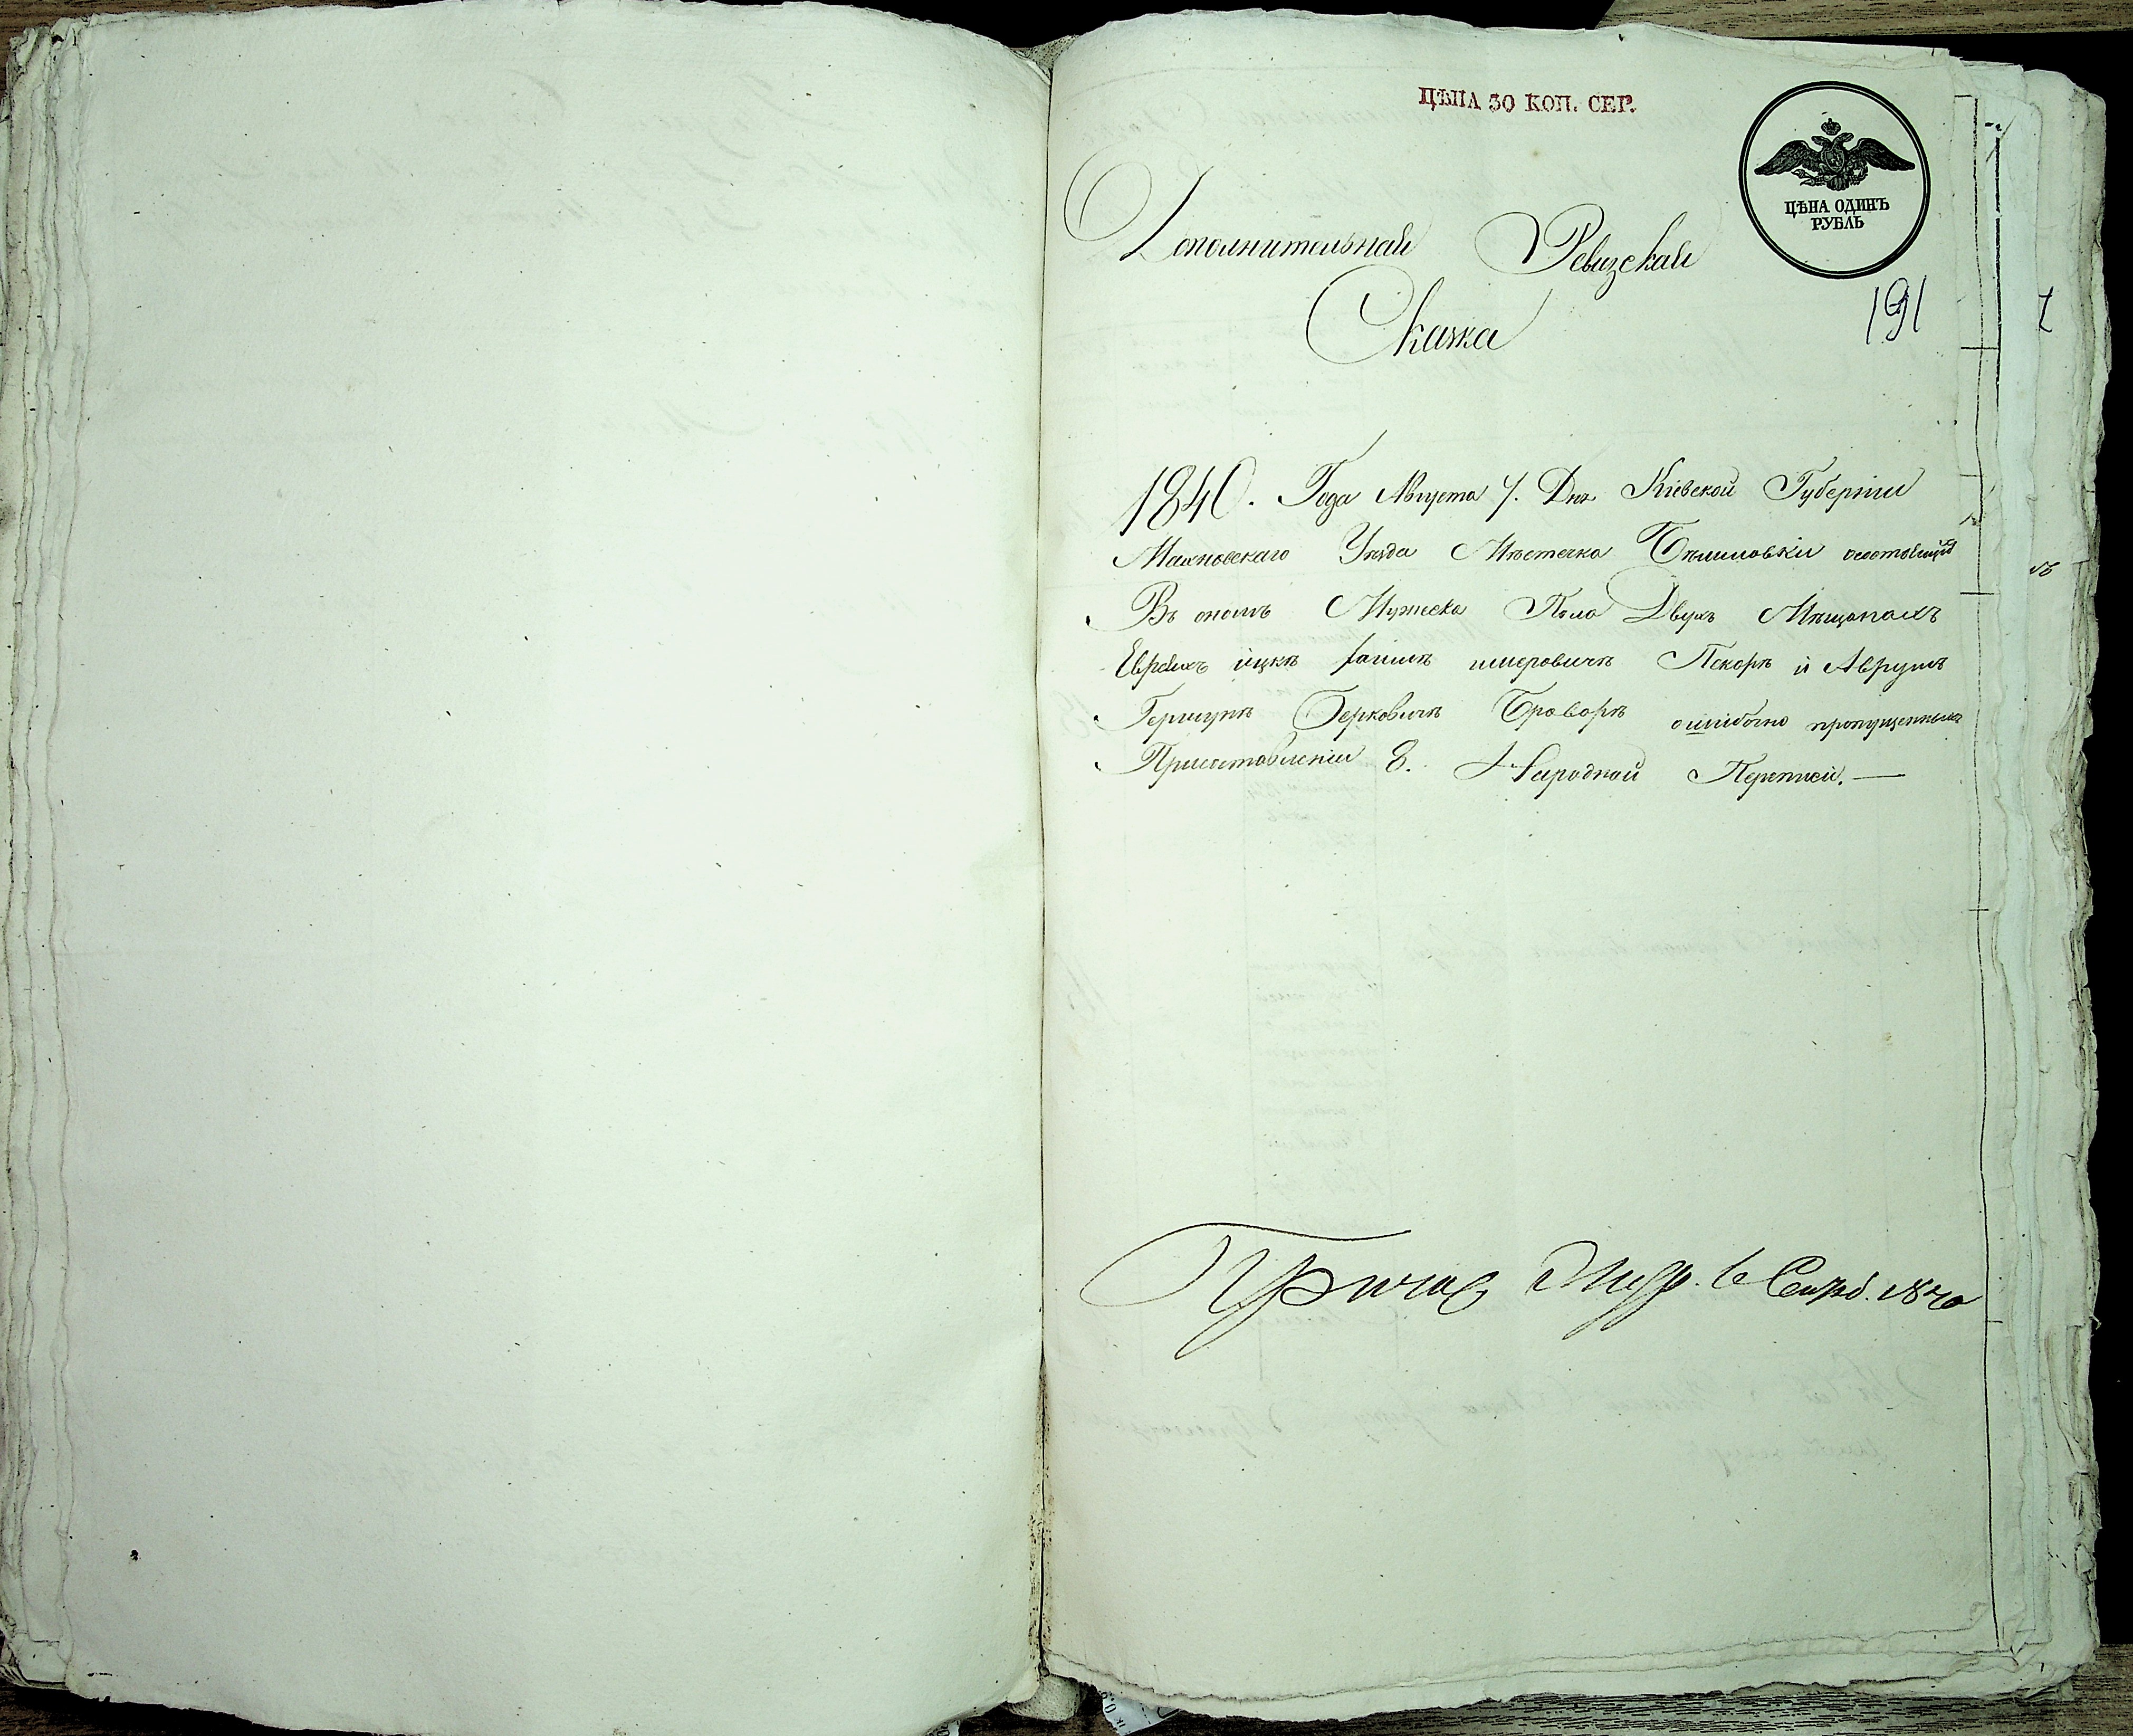 ЦѢНА 30 КОП. СЕР.
ЦѢНА ОДИНЪ
РУБЛЬ
Дополнительная Ревизская
191
Сказка
1840. Года Августа 7. Дня Кіевской Губерніи
Махновскаго Уезда Мѣстечка Бѣлиловки состоящей
Въ ономъ Мужеска Пола Двухъ Мѣщанахъ
Евреяхъ ицкѣ хаимѣ шмеровичѣ Пекорѣ и Аврумѣ
Гершунѣ Берковичѣ Браворѣ ошибочно пропущенныхъ
Присоставленіи 8. Народной Переписи.—
1840